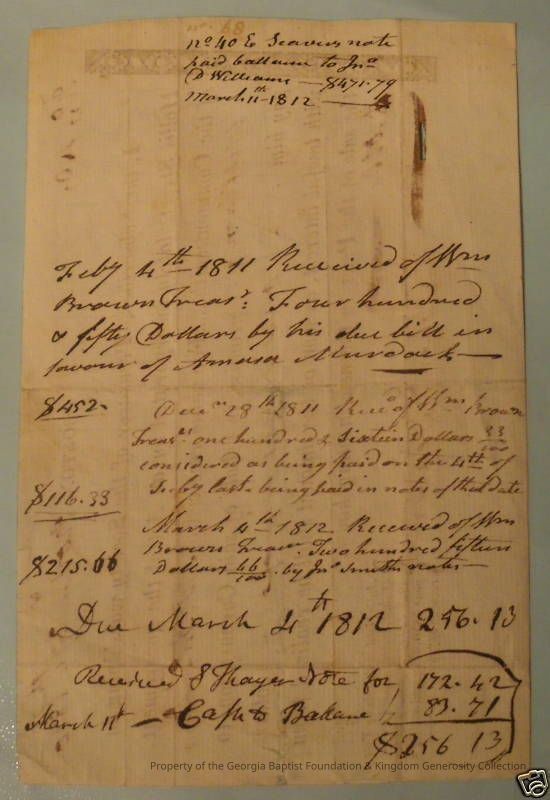 No 40 E Seavers note
paid ballance to Jno
D Williams — $471.79
March 11th 1812 —
Feby 4th 1811 Received of Wm
Brown Treasr: Four hundred
& fifty Dollars by his due bill in
favour of Amasa Murdock —
$452.
Decm 28th 1811 Recd of Wm Brown
Treasr one hundred & Sixteen Dollars 33/100
considered as being paid on the 4th of
Feby last. being paid in notes of that date
$116.33
March 4th 1812 Received of Wm
Brown Treasr. Two hundred fifteen
$215.66
Dollars 66/100 by Jno Smiths notes —
Due March 4th 1812 256.13
Received S Thayer Note for 172.42
March 11th — Cash to Balance 83.71
$256 13
Property of the Georgia Baptist Foundation & Kingdom Generosity Collection